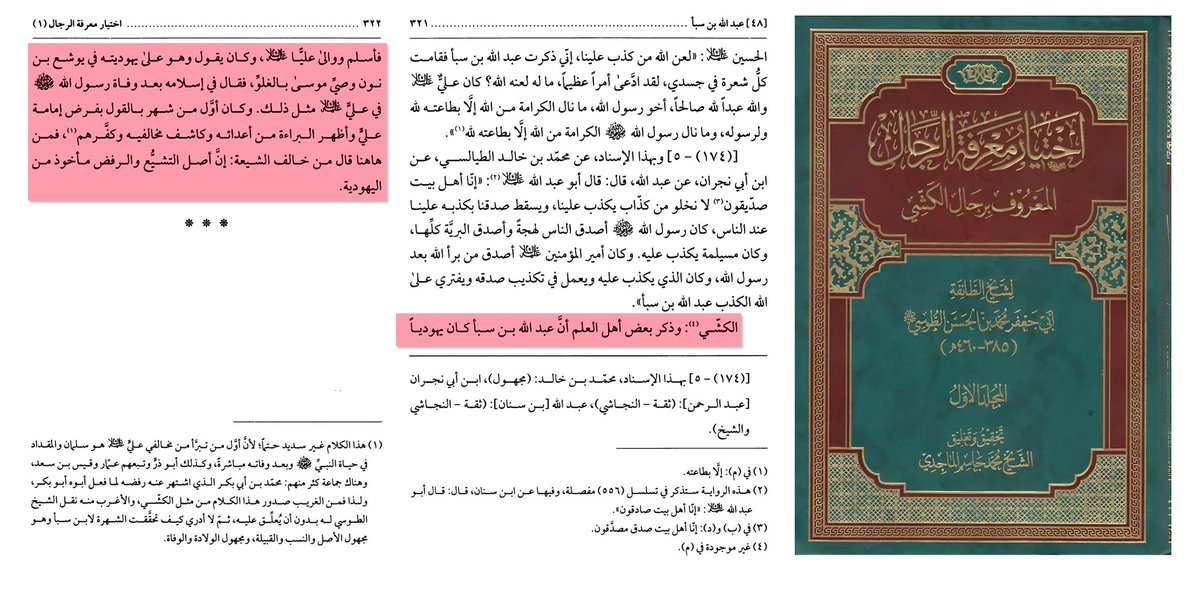 اختيار معرفة الرجال
المعروف برجال الكشي
لشيخ الطائفة
أبي جعفر محمد بن الحسن الطوسي
(٣٨٥-٤٦٠هـ)
المجلد الأول
تحقيق وتعليق
الشيخ محمد جاسم الماجدي
[٤٨] عبد الله بن سبأ ........................................................ ٣٢١
الحسين عليه السلام: «لعن الله من كذب علينا، إنّي ذكرت عبد الله بن سبأ فقامت
كلُّ شعرة في جسدي، لقد ادَّعىٰ أمراً عظيماً، ما له لعنه الله؟ كان عليٌّ عليه السلام
والله عبداً لله صالحاً، أخو رسول الله، ما نال الكرامة من الله إلَّا بطاعته لله
ولرسوله، وما نال رسول الله ﷺ الكرامة من الله إلَّا بطاعته لله(١)».
[(١٧٤) - ٥] وبهذا الإسناد، عن محمّد بن خالد الطيالسي، عن
ابن أبي نجران، عن عبد الله، قال: قال أبو عبد الله عليه السلام(٢): «إنّا أهل بيت
صدّيقون(٣) لا نخلو من كذّاب يكذب علينا، ويسقط صدقنا بكذبه علينا
عند الناس، كان رسول الله ﷺ أصدق الناس لهجةً وأصدق البريَّة كلِّها،
وكان مسيلمة يكذب عليه. وكان أمير المؤمنين عليه السلام أصدق من برأ الله بعد
رسول الله، وكان الذي يكذب عليه ويعمل في تكذيب صدقه ويفتري علىٰ
الله الكذب عبد الله بن سبأ».
الكشّي(٤): وذكر بعض أهل العلم أنَّ عبد الله بن سبأ كان يهودياً
[(١٧٤) - ٥] بهذا الإسناد، محمّد بن خالد: (مجهول)، ابن أبي نجران
[عبد الرحمن]: (ثقة - النجاشي)، عبد الله [بن سنان]: (ثقة - النجاشي
والشيخ).
(١) في (م): إلَّا بطاعته.
(٢) هذه الرواية ستذكر في تسلسل (٥٥٦) مفصلة، وفيها عن ابن سنان، قال: قال أبو
عبد الله عليه السلام: «إنّا أهل بيت صادقون».
(٣) في (ب) و(د): إنّا أهل بيت صدق مصدَّقون.
(٤) غير موجودة في (م).
٣٢٢ ........................................................ اختيار معرفة الرجال (١)
فأسلم ووالىٰ عليًّا عليه السلام، وكان يقول وهو علىٰ يهوديته في يوشع بن
نون وصيِّ موسىٰ بالغلوِّ، فقال في إسلامه بعد وفاة رسول الله ﷺ
في عليٍّ عليه السلام مثل ذلك. وكان أوَّل من شهر بالقول بفرض إمامة
عليٍّ وأظهر البراءة من أعدائه وكاشف مخالفيه وكفَّرهم(١)، فمن
هاهنا قال من خالف الشيعة: إنَّ أصل التشيُّع والرفض مأخوذ من
اليهودية.
* * *
(١) هذا الكلام غير سديد حتماً؛ لأنَّ أوَّل من تبرَّأ من مخالفي عليٍّ عليه السلام هو سلمان والمقداد
في حياة النبيِّ ﷺ وبعد وفاته مباشرةً، وكذلك أبو ذرٍّ وتبعهم عمّار وقيس بن سعد،
وهناك جماعة كثر منهم: محمّد بن أبي بكر الذي اشتهر عنه رفضه لما فعل أبوه أبو بكر،
ولذا فمن الغريب صدور هذا الكلام من مثل الكشّي، والأغرب منه نقل الشيخ
الطوسي له بدون أن يُعلِّق عليه، ثمّ لا أدري كيف تحقَّقت الشهرة لابن سبأ وهو
مجهول الأصل والنسب والقبيلة، ومجهول الولادة والوفاة.